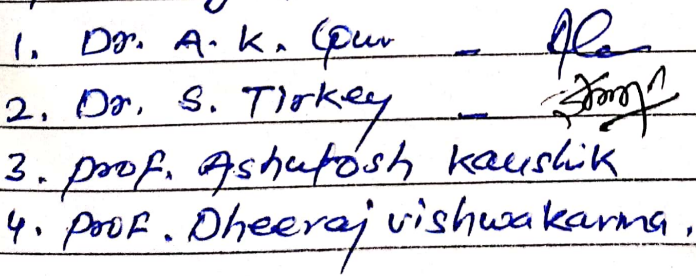 1. Dr. A. K. Gour -
2. Dr. S. Tirkey -
3. prof. Ashutosh kaushik
4. prof. Dheeraj vishwakarma.